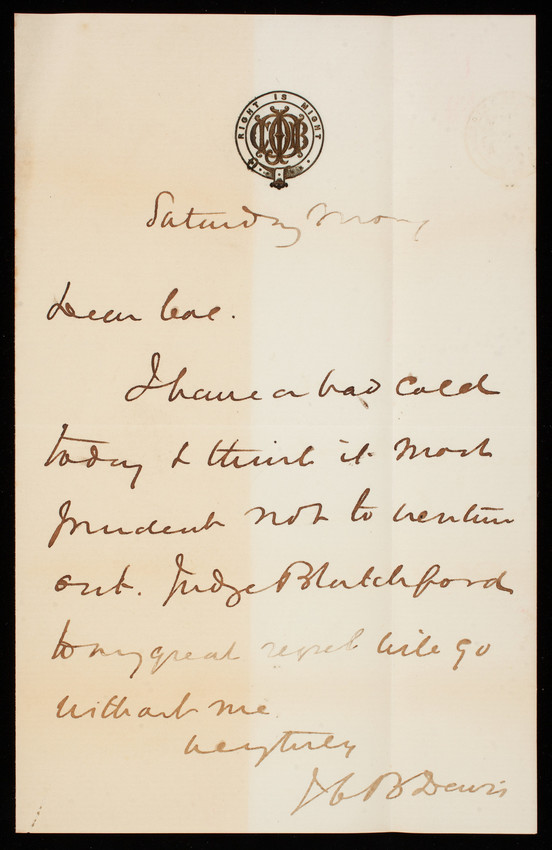 RIGHT IS MIGHT
Saturday Morng
Dear Col.
I have a bad cold
today & think it most
prudent not to venture
out. Judge Blatchford
to my great regret will go
without me
very truly
J C B Davis